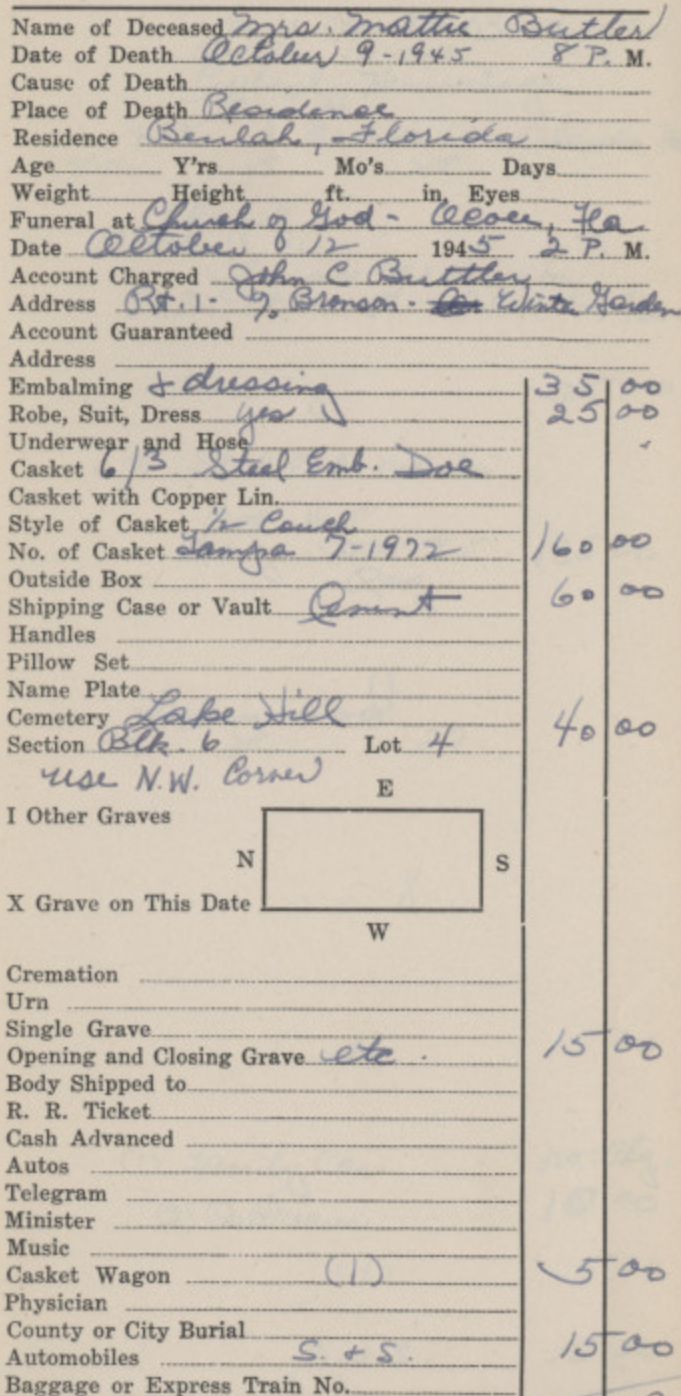 Name of Deceased Mrs. Mattie Butler
Date of Death October 9-1945 8 P. M.
Cause of Death
Place of Death Residence
Residence Beulah, Florida
Age Y'rs Mo's Days
Weight Height ft. in. Eyes
Funeral at Church of God - Ocoee, Fla
Date October 12 1945 2 P. M.
Account Charged John C Buttler
Address Rt. 1 - % Bronson - Winter Garden
Account Guaranteed
Address
Embalming & dressing 35 00
Robe, Suit, Dress yes 25 00
Underwear and Hose
Casket 6/3 Steel Emb. Doe
Casket with Copper Lin.
Style of Casket 1/2 Couch
No. of Casket Tampa 7-1972 160 00
Outside Box
Shipping Case or Vault Cement 60 00
Handles
Pillow Set
Name Plate
Cemetery Lake Hill
Section Blk. 6 Lot 4 40 00
use N.W. Corner
E
I Other Graves
N S
X Grave on This Date
W
Cremation
Urn
Single Grave
Opening and Closing Grave etc. 15 00
Body Shipped to
R. R. Ticket
Cash Advanced
Autos
Telegram
Minister
Music
Casket Wagon (1) 5 00
Physician
County or City Burial
Automobiles S. & S. 15 00
Baggage or Express Train No.